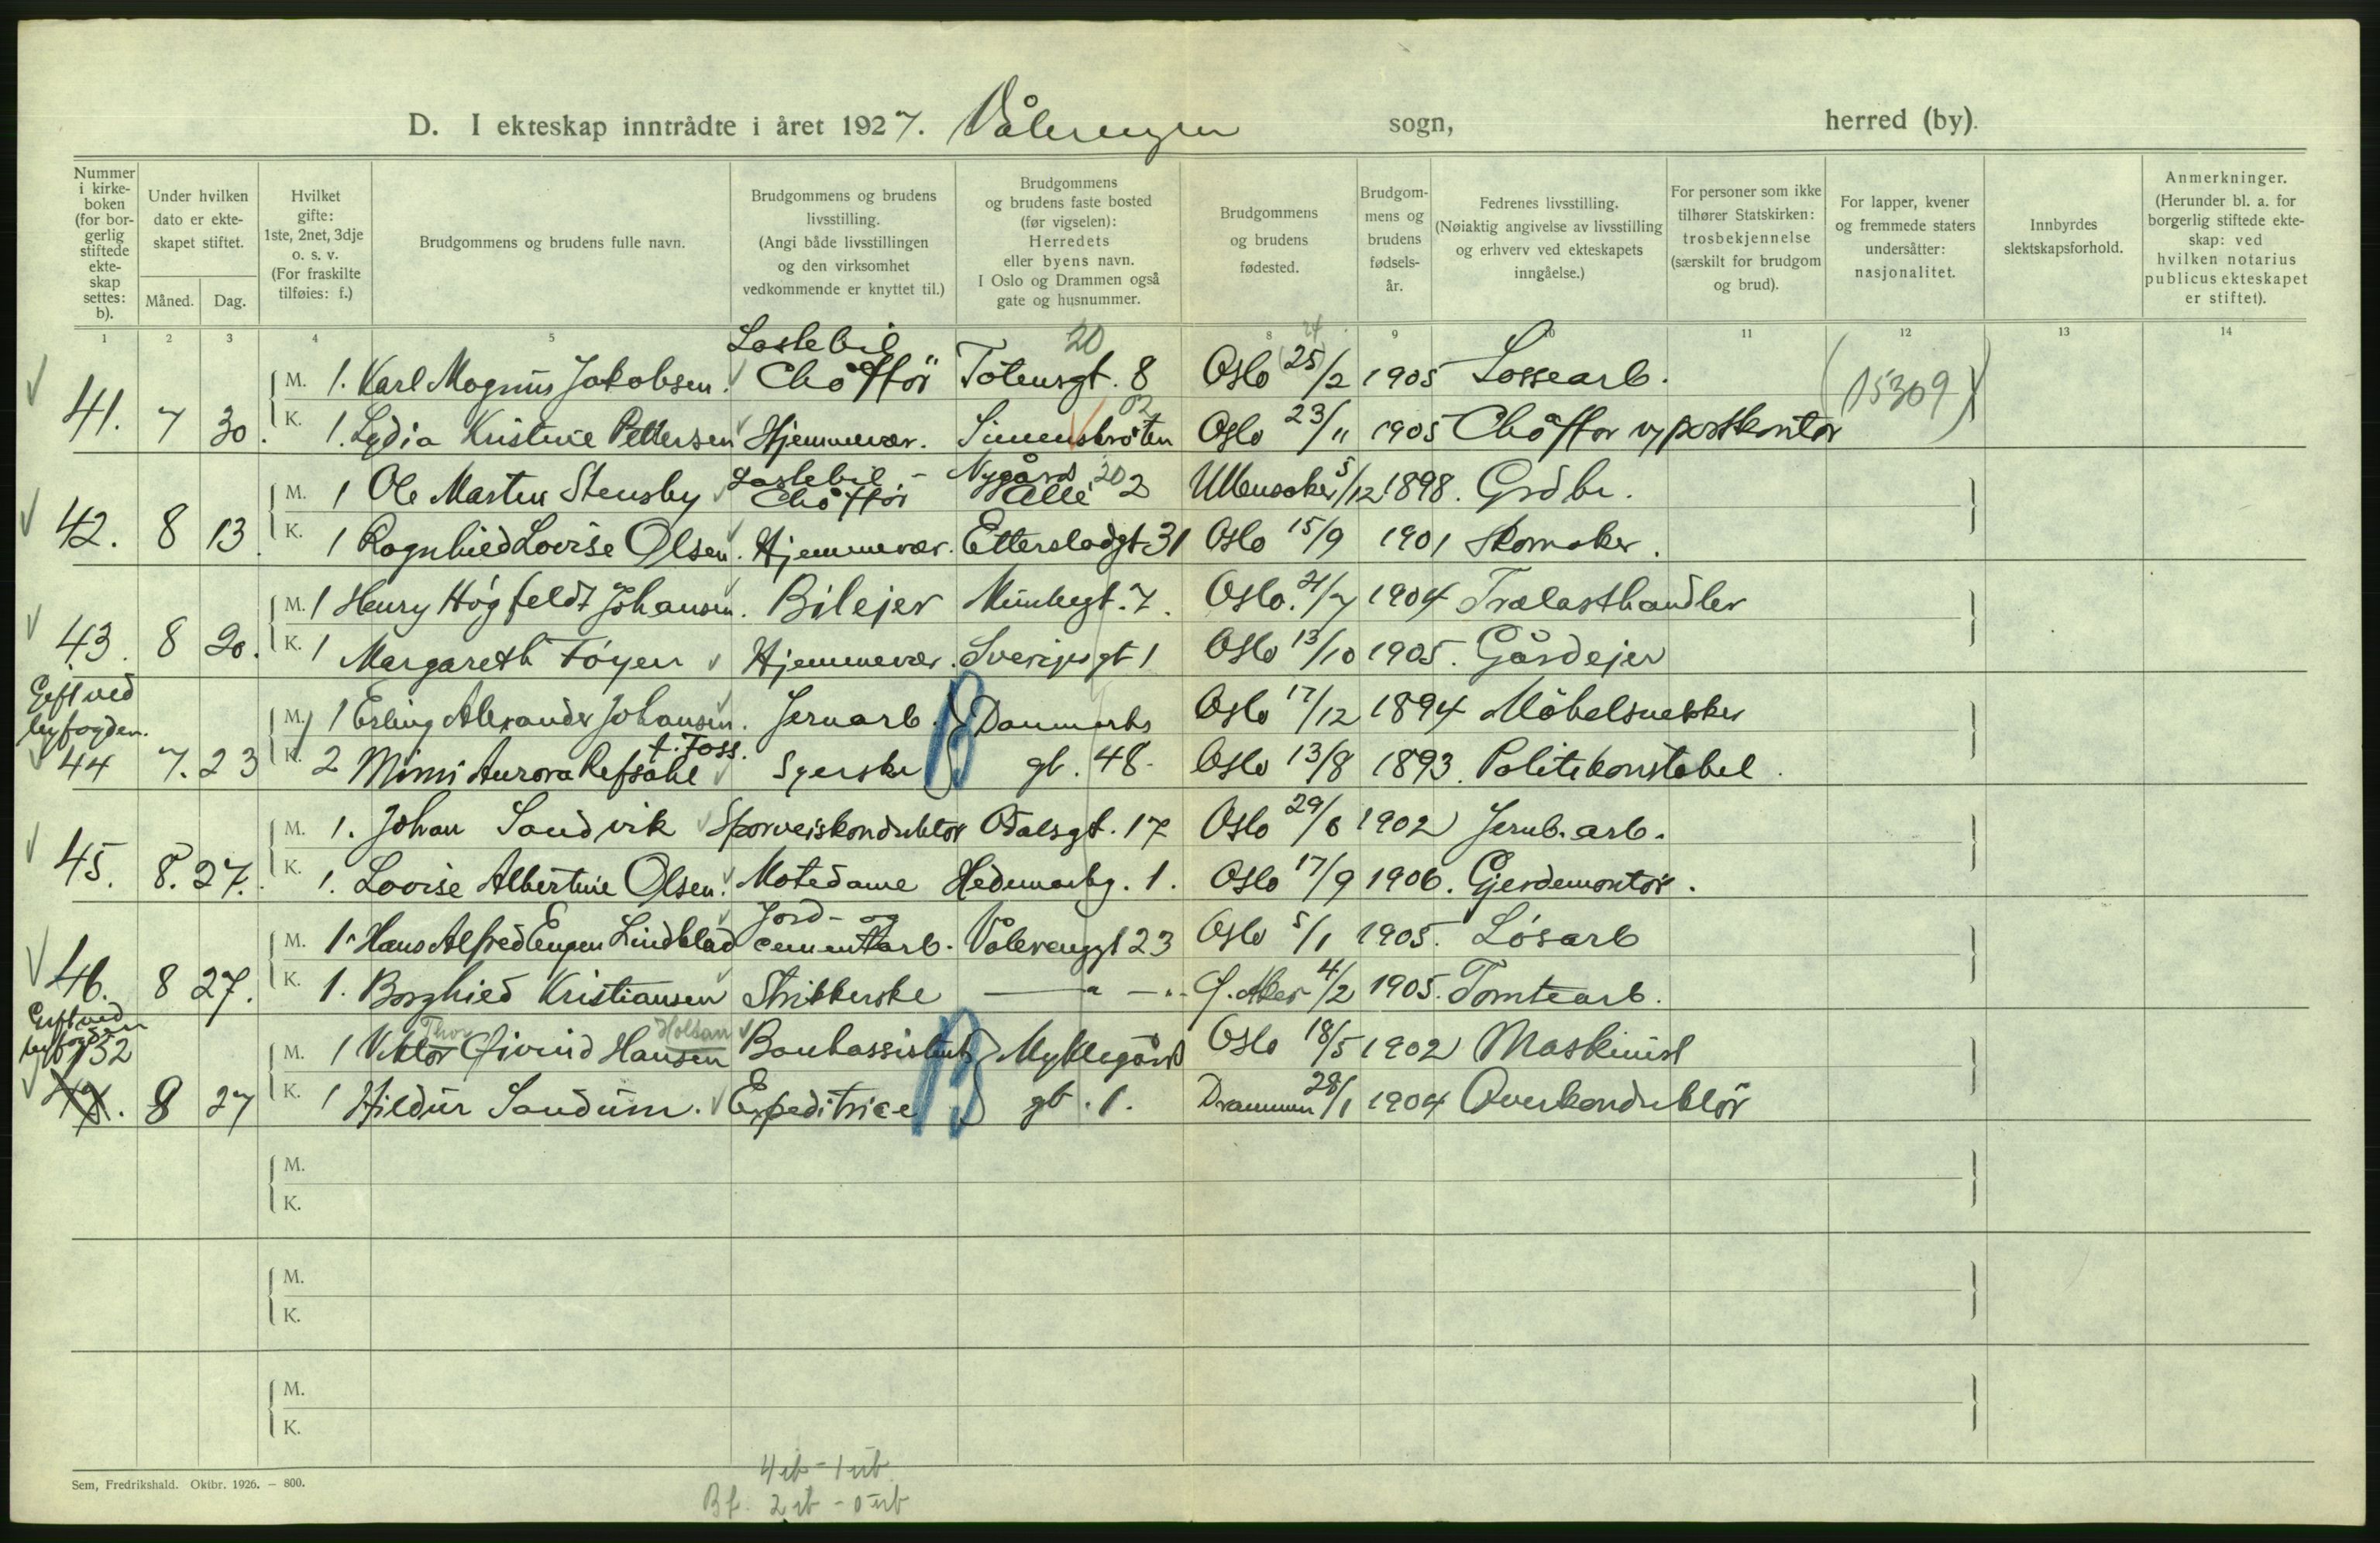 D. I ekteskap inntrådte i året 1927. Vålerengen sogn, herred (by).
Nummer i kirkeboken (for borgerlig stiftede ekteskap settes: b).
Under hvilken dato er ekteskapet stiftet.
Måned. Dag.
Hvilket gifte: 1ste, 2net, 3dje o. s. v. (For fraskilte tilføies: f.)
Brudgommens og brudens fulle navn.
Brudgommens og brudens livsstilling. (Angi både livsstillingen og den virksomhet vedkommende er knyttet til.)
Brudgommens og brudens faste bosted (før vigselen): Herredets eller byens navn. I Oslo og Drammen også gate og husnummer.
Brudgommens og brudens fødested.
Brudgommens og brudens fødselsår.
Fedrenes livsstilling. (Nøiaktig angivelse av livsstilling og erhverv ved ekteskapets inngåelse.)
For personer som ikke tilhører Statskirken: trosbekjennelse (særskilt for brudgom og brud).
For lapper, kvener og fremmede staters undersåtter: nasjonalitet.
Innbyrdes slektskapsforhold.
Anmerkninger. (Herunder bl. a. for borgerlig stiftede ekteskap: ved hvilken notarius publicus ekteskapet er stiftet).
1 2 3 4 5 8 9 10 11 12 13 14
Lastebil 20
M. 1. Karl Magnus Jakobsen. Chöfför Totensgt. 8 Oslo 25/2 1905 Lossearb. (15309)
41. 7 30. K. 1. Lydia Kristine Pettersen Hjemmevær. Simensbråten Oslo 23/11 1905 Chöffør v/ postkontor
Lastebil - Nygård 20
M. 1 Ole Marten Stensby Chöfför Allé 2 Ullensaker 5/12 1898. Grdbr.
42. 8 13. K. 1 Ragnhild Lovise Olsen. Hjemmevær. Etterstadgt 31 Oslo 15/9 1901 Skomaker.
M. 1 Henry Högfeldt Johansen. Bilejer Munkegt. 7. Oslo. 21/7 1904 Trælasthandler
43. 8 20. K. 1 Margareth Töyen Hjemmevær. Sverigesgt 1 Oslo 13/10 1905. Gårdejer
Gift ved byfogden.
M. 1 Erling Alexander Johansen. Jernarb. B Danmarks Oslo 17/12 1894 Möbelsnekker
f. Foss.
44 7. 23 K. 2 Mimi Aurora Refsahl Syerske gt. 48. Oslo 13/8 1893. Politikonstabel.
M. 1. Johan Sandvik Sporveiskonduktör Odalsgt. 17 Oslo 29/6 1902 Jernb. arb.
45. 8. 27. K. 1. Lovise Albertine Olsen. Motedame Hedemarkg. 1. Oslo 17/9 1906. Gjerdemontör.
Jord- og
M. 1. Hans Alfred Eugen Lindblad cementarb. Vålerenggt 23 Oslo 5/1 1905. Lösarb
46. 8 27. K. 1. Borghild Kristiansen Strikkerske — " — Ø. Aker 4/2 1905. Tomtearb.
Gift ved byfogden
132
Thor Holtan
M. 1 Viktor Eivind Hansen Bankassistent B Myklegård Oslo 18/5 1902 Maskinist
8 27 K. 1 Hildur Sandum. Expeditrice gt. 1. Drammen 28/1 1904 Overkonduktör
M.
K.
M.
K.
M.
K.
Sem, Fredrikshald. Oktbr. 1926. – 800.